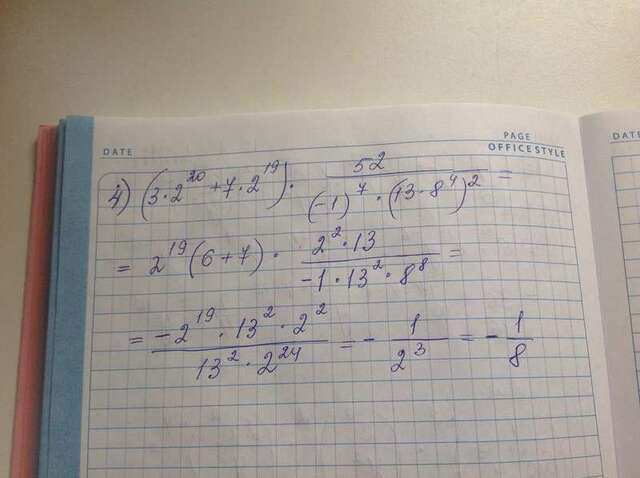 DATE
PAGE
OFFICE STYLE
DATE
4) (3·2^20 + 7·2^19) · 52 / ((-1)^7 · (13·8^4)^2) =
= 2^19 (6+7) · (2^2·13) / (-1·13^2·8^8) =
= (-2^19·13^2·2^2) / (13^2·2^24) = - 1/2^3 = - 1/8